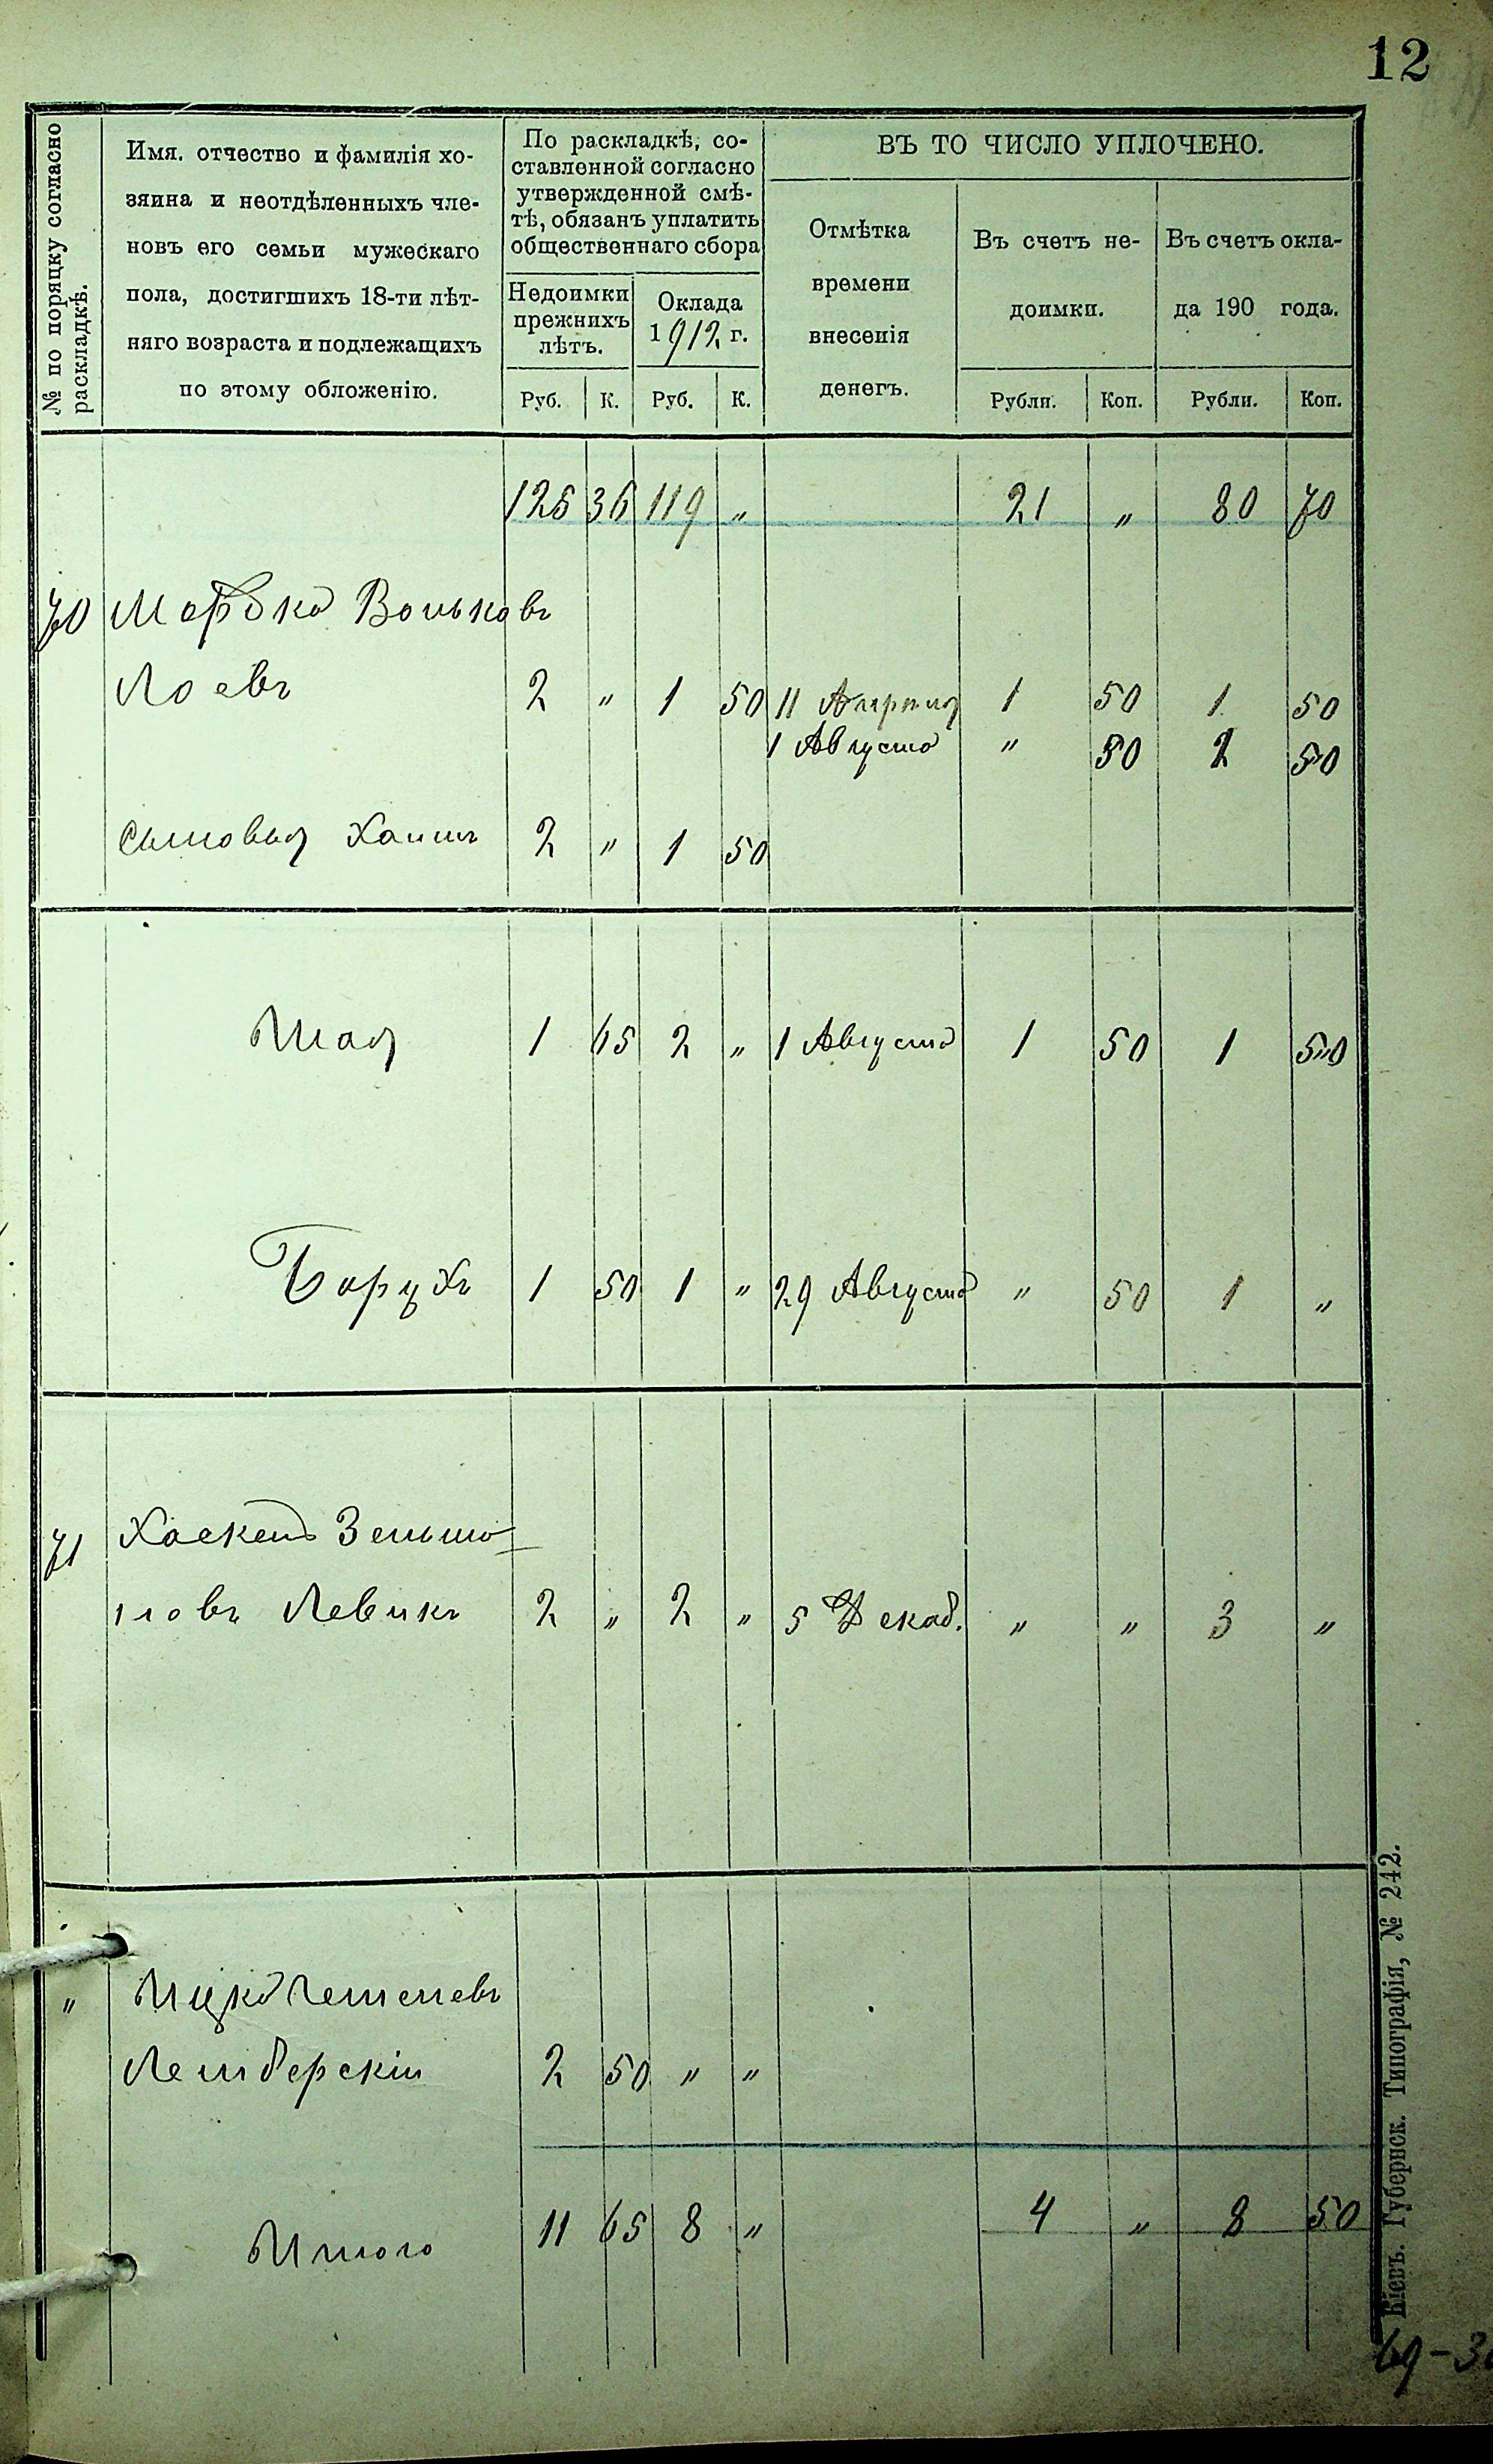 12
№ по поряцку согласно раскладкѣ.
Имя. отчество и фамилія хо-
зяина и неотдѣленныхъ чле-
новъ его семьи мужескаго
пола, достигшихъ 18-ти лѣт-
няго возраста и подлежащихъ
по этому обложенію.
По раскладкѣ, со-
ставленной согласно
утвержденной смѣ-
тѣ, обязанъ уплатить
общественнаго сбора
Недоимки
прежнихъ
лѣтъ.
Оклада
1912 г.
Руб. К. Руб. К.
ВЪ ТО ЧИСЛО УПЛОЧЕНО.
Отмѣтка
времени
внесенія
денегъ.
Въ счетъ не-
доимки.
Въ счетъ окла-
да 190 года.
Рубли. Коп. Рубли. Коп.
126 36 119 " 21 " 80 70
70 Мордко Вольковъ
Лоевъ 2 " 1 50 11 Апрѣля 1 50 1 50
1 Августа " 50 2 50
Сыновья Хаимъ 2 " 1 50
Шая 1 65 2 " 1 Августа 1 50 1 50
Борухъ 1 50 1 " 29 Августа " 50 1 "
71 Хаскель Зельмо-
новъ Левикъ 2 " 2 " 5 Декаб. " " 3 "
" Ицко
Лемберскій 2 50 " "
Итого 11 65 8 " 4 " 8 50
Кіевъ. Губернск. Типографія, № 242.